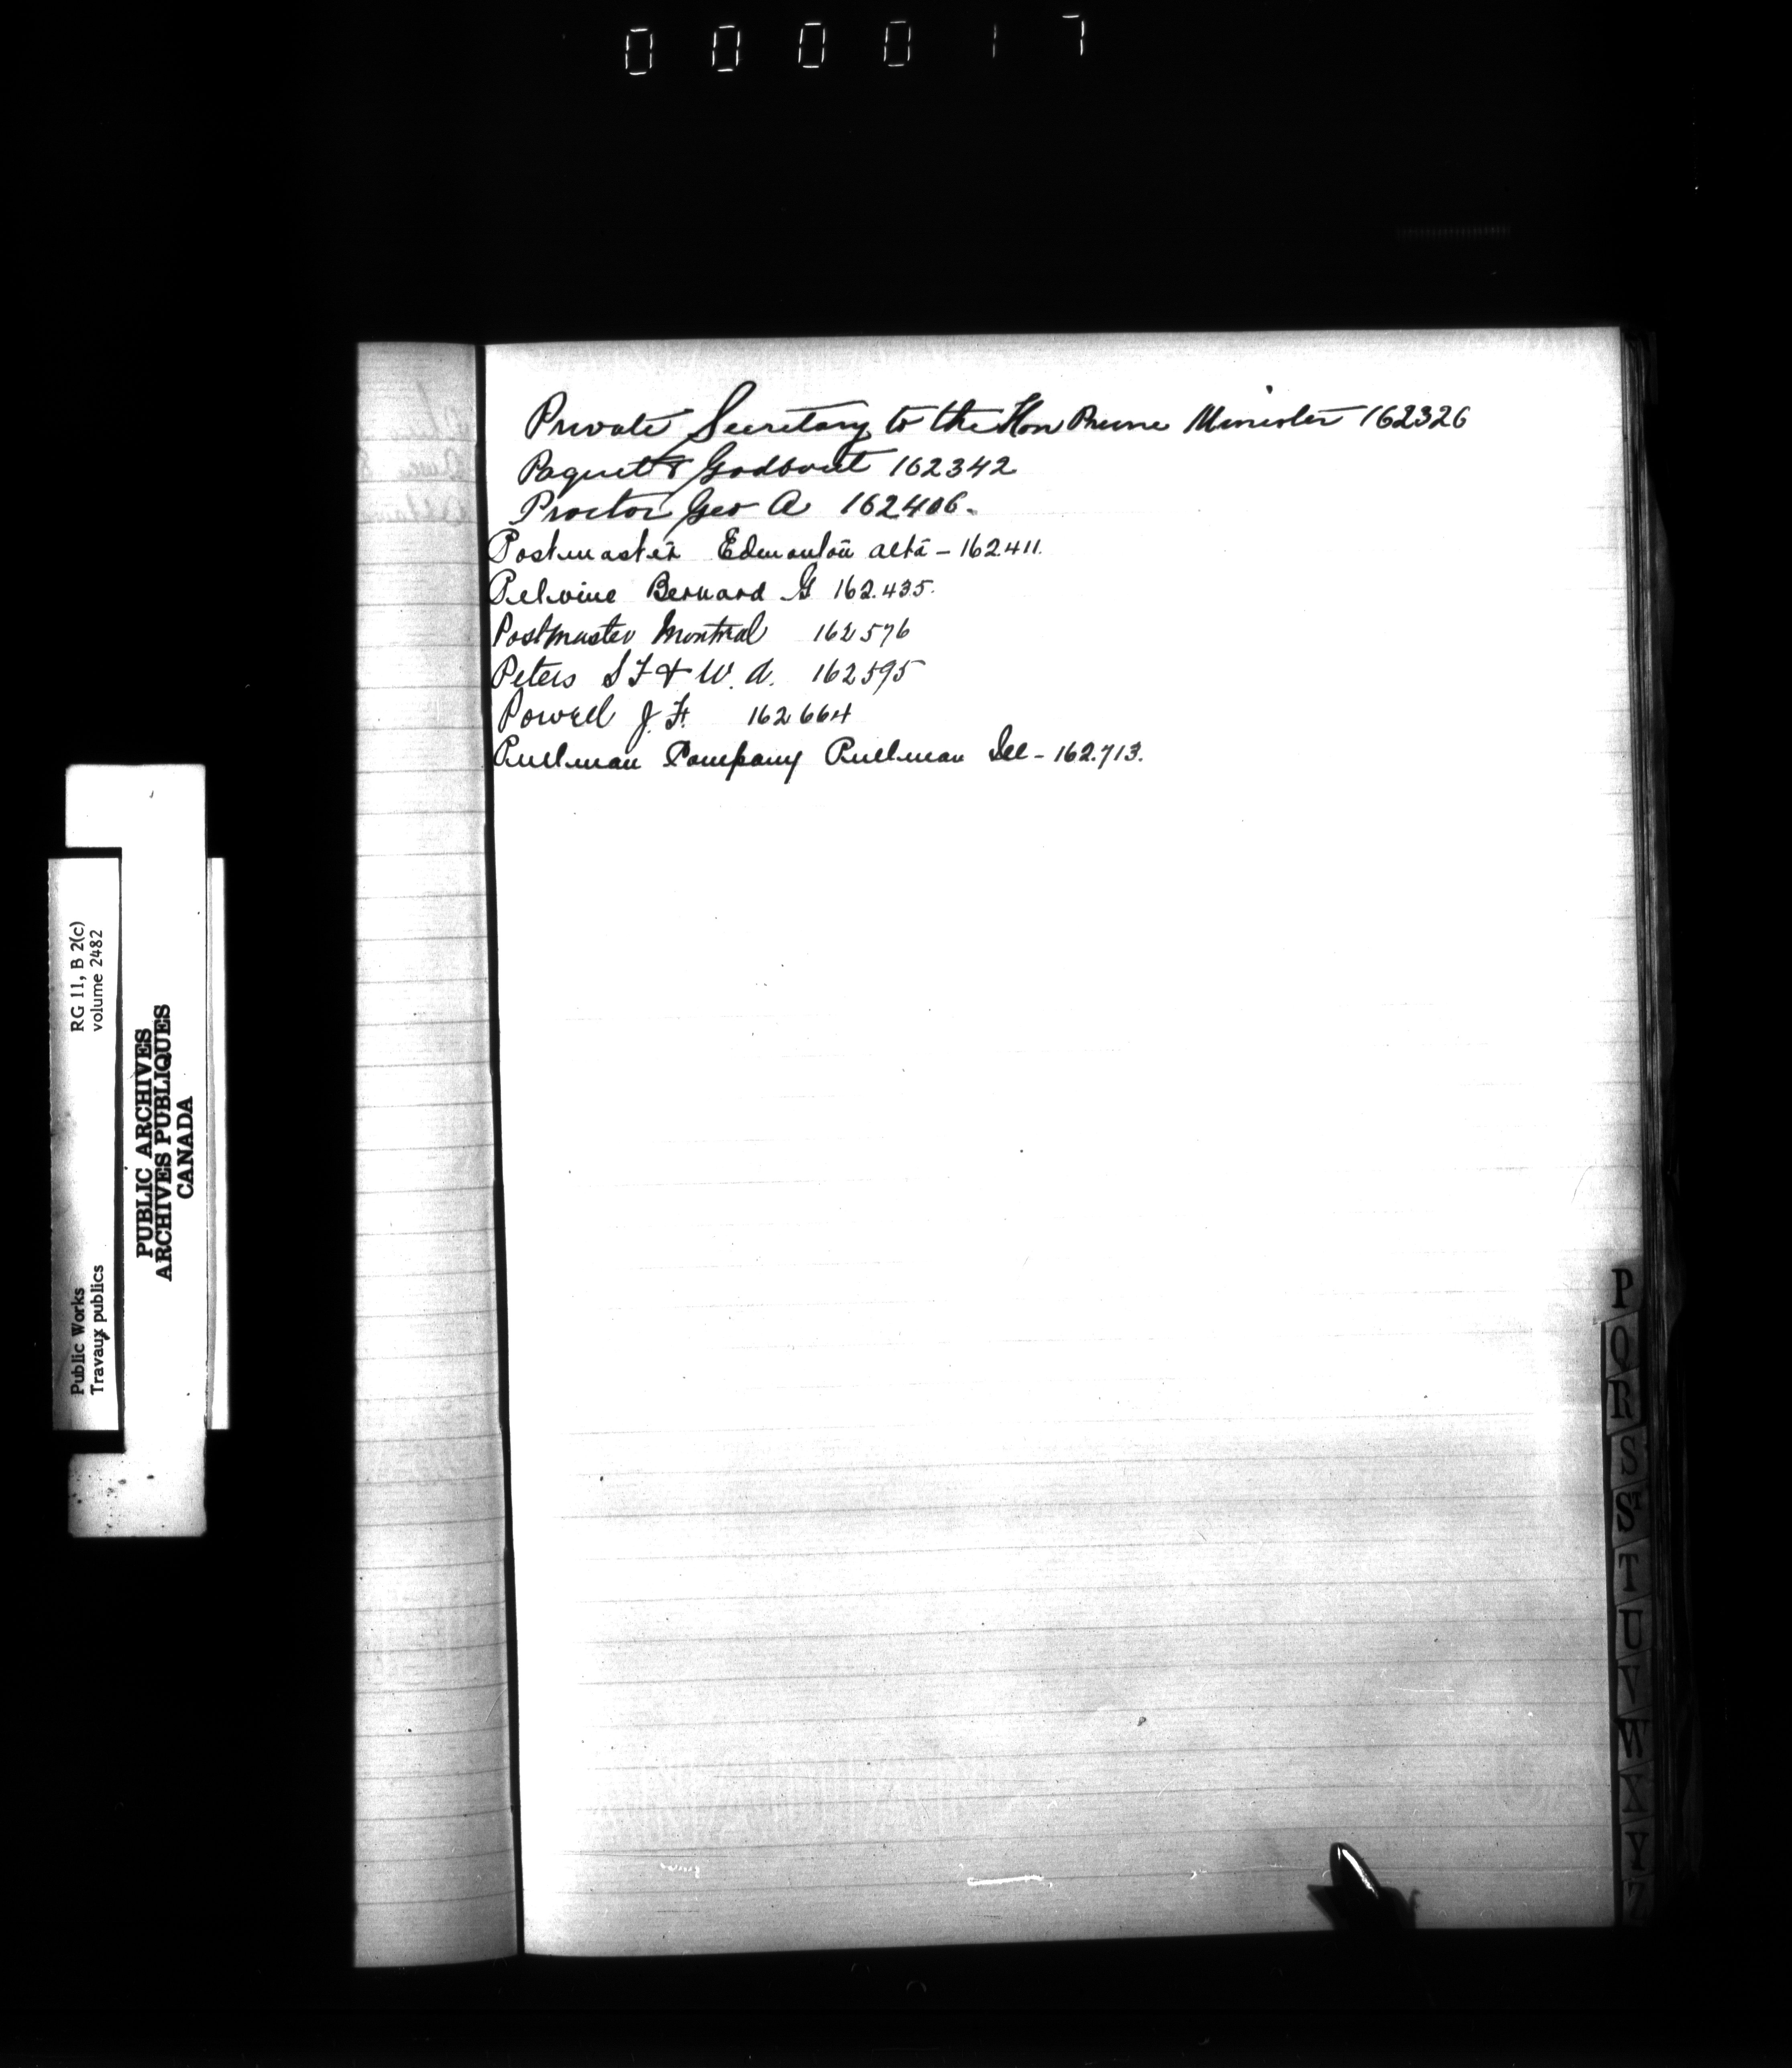 000017
Private Secretary to the Hon Prime Minister 162326
Paquet & Godbout 162342
Proctor Geo A 162406.
Postmaster Edmonton Alta - 162.411.
Bernard G 162.435.
Postmaster Montreal 162576
Peters S F & W. A. 162595
Powell J. F. 162664
Pullman Company Pullman Ill - 162.713.
RG 11, B 2(c)
volume 2482
Public Works
Travaux publics
PUBLIC ARCHIVES
ARCHIVES PUBLIQUES
CANADA
P
Q
R
S
St
T
U
V
W
X
Y
Z